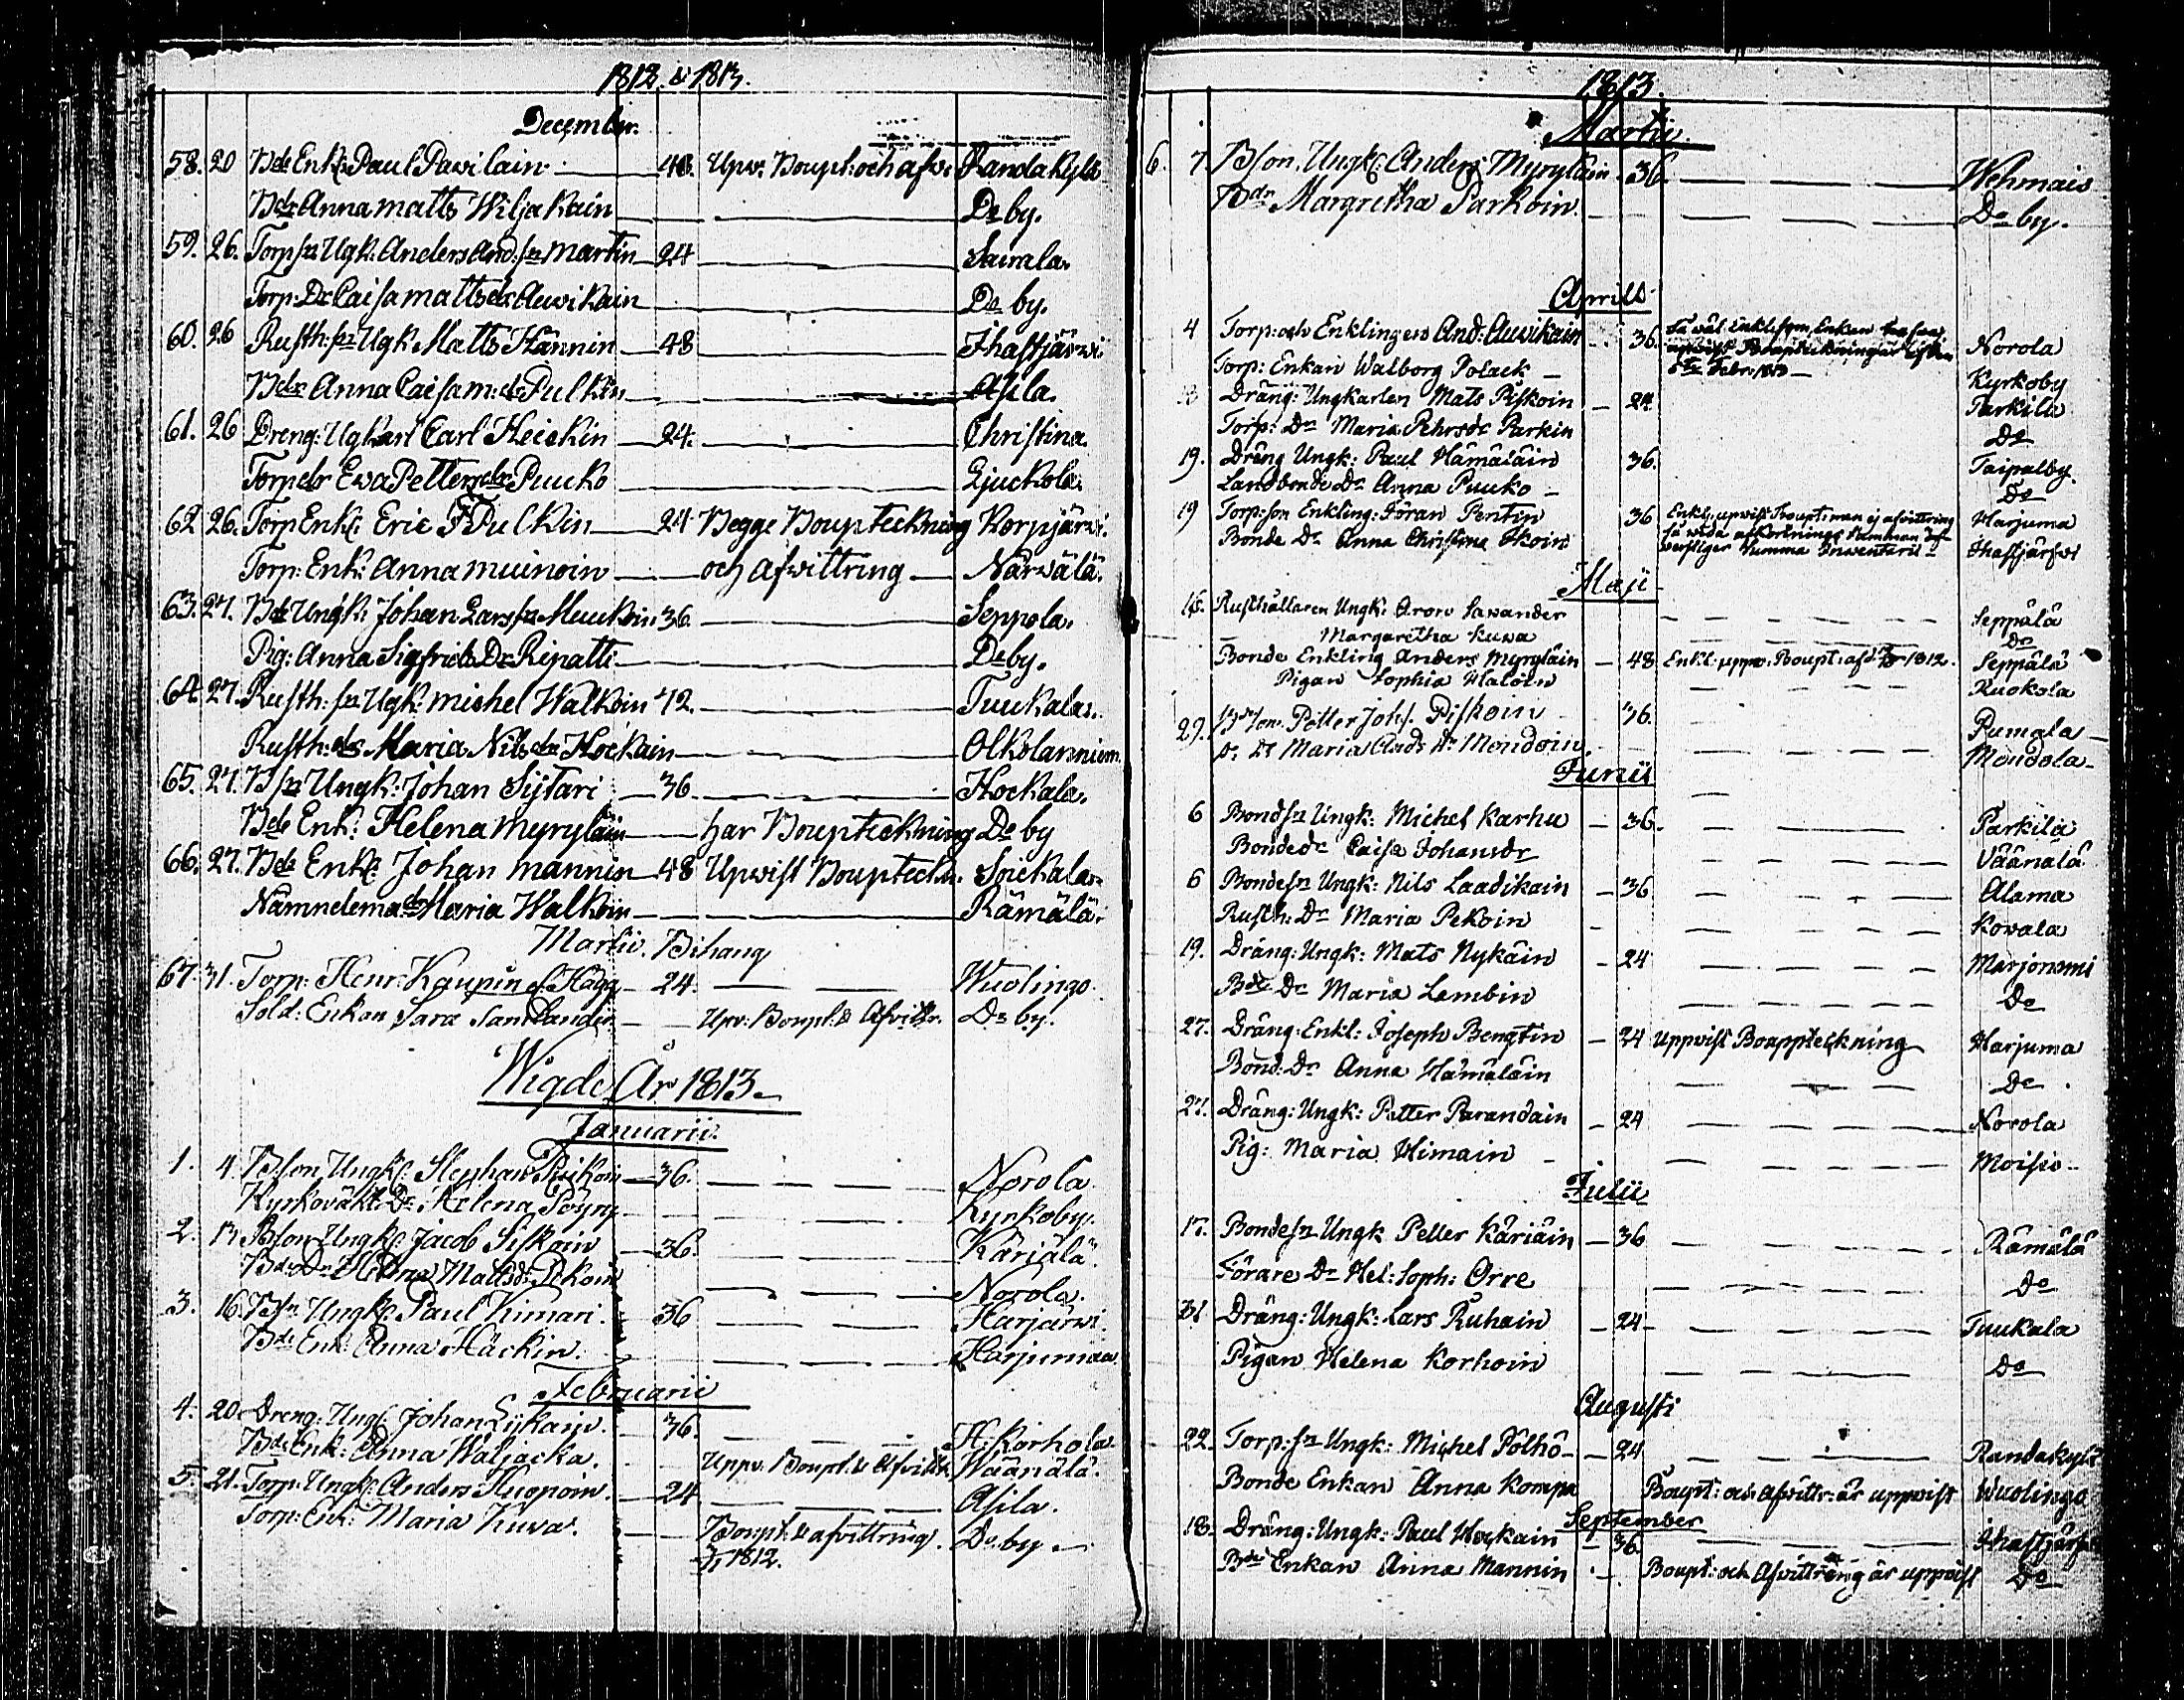 1812 & 1813.
December.
58. 20 Bde Enkl: Paul Pavilain 48. Upv. Boupt: och afv: Randakylä
Bdr Anna Matts Wiljakain Do by.
59. 26. Torp sn Ugk: Anders And: sn Martin 24 Sairala.
Torp: Dr Caisa Matts dr Auvikain Do by.
60. 26 Rusth: sn Ugk Matts Hännin 48 Ihastjärwi
Bdr Anna Caisa M: dr Pulkin Asila.
61. 26 Dreng: Ugkarl Carl Heickin 24. Christina
Torp dr Ewa Petters dr Puuko Ljuckola.
62 26. Torp Enkl: Eric Pulkin 24 Begge Boupteckning Korpjärwi.
Torp: Enk: Anna Muinoin och afvittring Närwälä.
63. 27. Bde Ungk: Johan Lars sn Muukoin 36. Seppola.
Pig: Anna Sigfrids Dr Ripatti Do by.
64. 27. Rusth: sn Ugk: Michel Walkoin 42. Tuukala.
Rusth: dr Maria Nils dr Hockain Olkolanniem
65. 27. B sn Ungk: Johan Sijtari 36. Hockala.
Bde Enk: Helena Myryläin har Boupteckning Do by
66. 27. Bde Enkl: Johan Mannin 48 Upvist Boupteckn. Soickala
Nämndema dr Maria Walkoin Rämälä.
Martii. Bihang
67. 31. Torp: Henr: Kaupin Hägg 24. Wuolingo.
Sold: Enkan Sara Sandander Upv: Boupt: & Afvittr. Do by.
Wigde År 1813.
Januarii.
1. 4. Bson Ungk: Stephan Piskoin 36. Norola.
Kyrkovakt: Dr Helena Pöyry Kyrkoby.
2. 13 Bson Ungk: Jacob Siskoin 36. Käriälä.
Bde Dr Helena Matts dr Pekoin Norola.
3. 16. B sn Ungk: Paul Kimari. 36 Harjärwi
Bde Enk: Anna Häckin. Harjumaa
Februarii
4. 20. Dreng: Ungk: Johan Lijkain. 36. H: Korhola
Bde Enk: Anna Waljacka. Uppv. Boupt: & Afvittr. Wäänälä.
5. 21. Torp: Ungk: Anders Kuopoin. 24 Asila.
Torp: Enk: Maria Kuwa. Boupt: & afvittring. Do by.
1812.
1813.
Martii.
6. 7. Bson. Ungk: Anders Myryläin 36. Wehmais
Bdr Margretha Parkoin. Do by.
Aprils
4 Torp: och Enklingen And: Auvikain 36. Så väl Enkl: som Enkan
Febr: 1813 Norola
Torp: Enkan Walborg Polack Kyrkoby
Dräng: Ungkarlen Mats Piskoin 24. Parkila
Torp: Dr Maria Pehrs dr Parkin Do
19. Dräng Ungk: Paul Hämäläin 36. Taipalby
Landbonde Dr Anna Puuko Do
19 Torp: son Enkling: Jöran Pentin 36 Enkl: upvist Boupt: men ej afvittring Harjuma
Bonde Dr Anna Christina Ikoin Ihastjärfvi
Maji
16. Rusthållaren Ungk: Aron Sawander Seppälä
Margaretha Kuwa Do
Bonde Enkling Anders Myryläin 48 Enkl: uppv. Boupt: af 1812. Seppälä
Pigan Sophia Haloin Ruokola
29. Bdeson. Petter Johs. Piskoin 36. Pumala
Maria Clads dr Mondoin. Mondola
Junii
6 Bondesn Ungk: Michel Karhu 36. Parkila
Bondedr Caisa Johansdr Väänälä
6 Bondesn Ungk: Nils Laadikain 36 Alama
Rusth: Dr Maria Pekoin Kovala
19. Dräng: Ungk: Mats Nykäin 24 Marjoniemi
Bde Dr Maria Lembin Do
27. Dräng: Enkl: Joseph Bengtin 24 Uppvist Bouppteckning Harjuma
Bond: Dr Anna Hämäläin Do
27. Dräng: Ungk: Petter Parandain 24 Norola
Pig: Maria Himain Moisio
Julii
17. Bondesn Ungk Petter Käriäin 36 Rämälä
Förare Dr Hel: Soph: Orre Do
31 Dräng: Ungk: Lars Ruhain 24 Tuukala
Pigan Helena Korhoin Do
Augusti
22. Torp: sn Ungk: Michel Pölhö 24 Randakylä
Bonde Enkan Anna Kompa Boupt: och Afvittr: är uppvist Wuolingo
September
18. Dräng: Ungk: Paul Hockain 36. Ihastjärfvi
Bde Enkan Anna Mannin Boupt: och Afvittring är uppvist Do